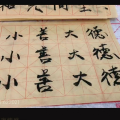 小善大德
小善大德
小善大德